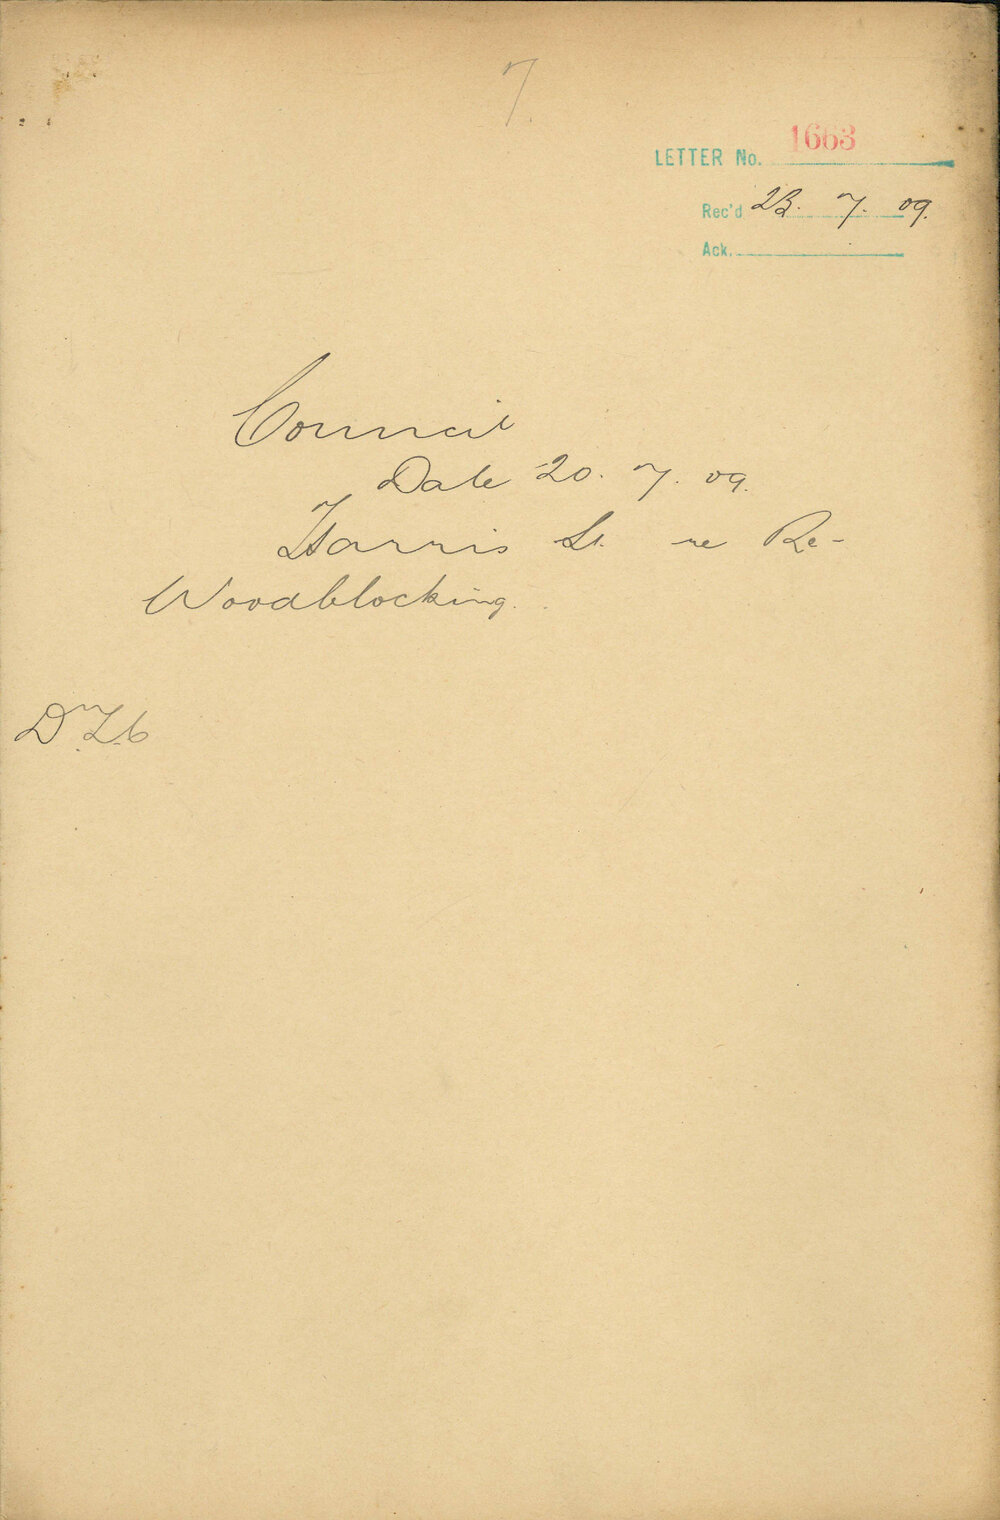 7
LETTER No. 1663
Rec'd 23. 7. 09.
Ack.
Council
Date 20. 7. 09.
Harris St. re Re-
Woodblocking.